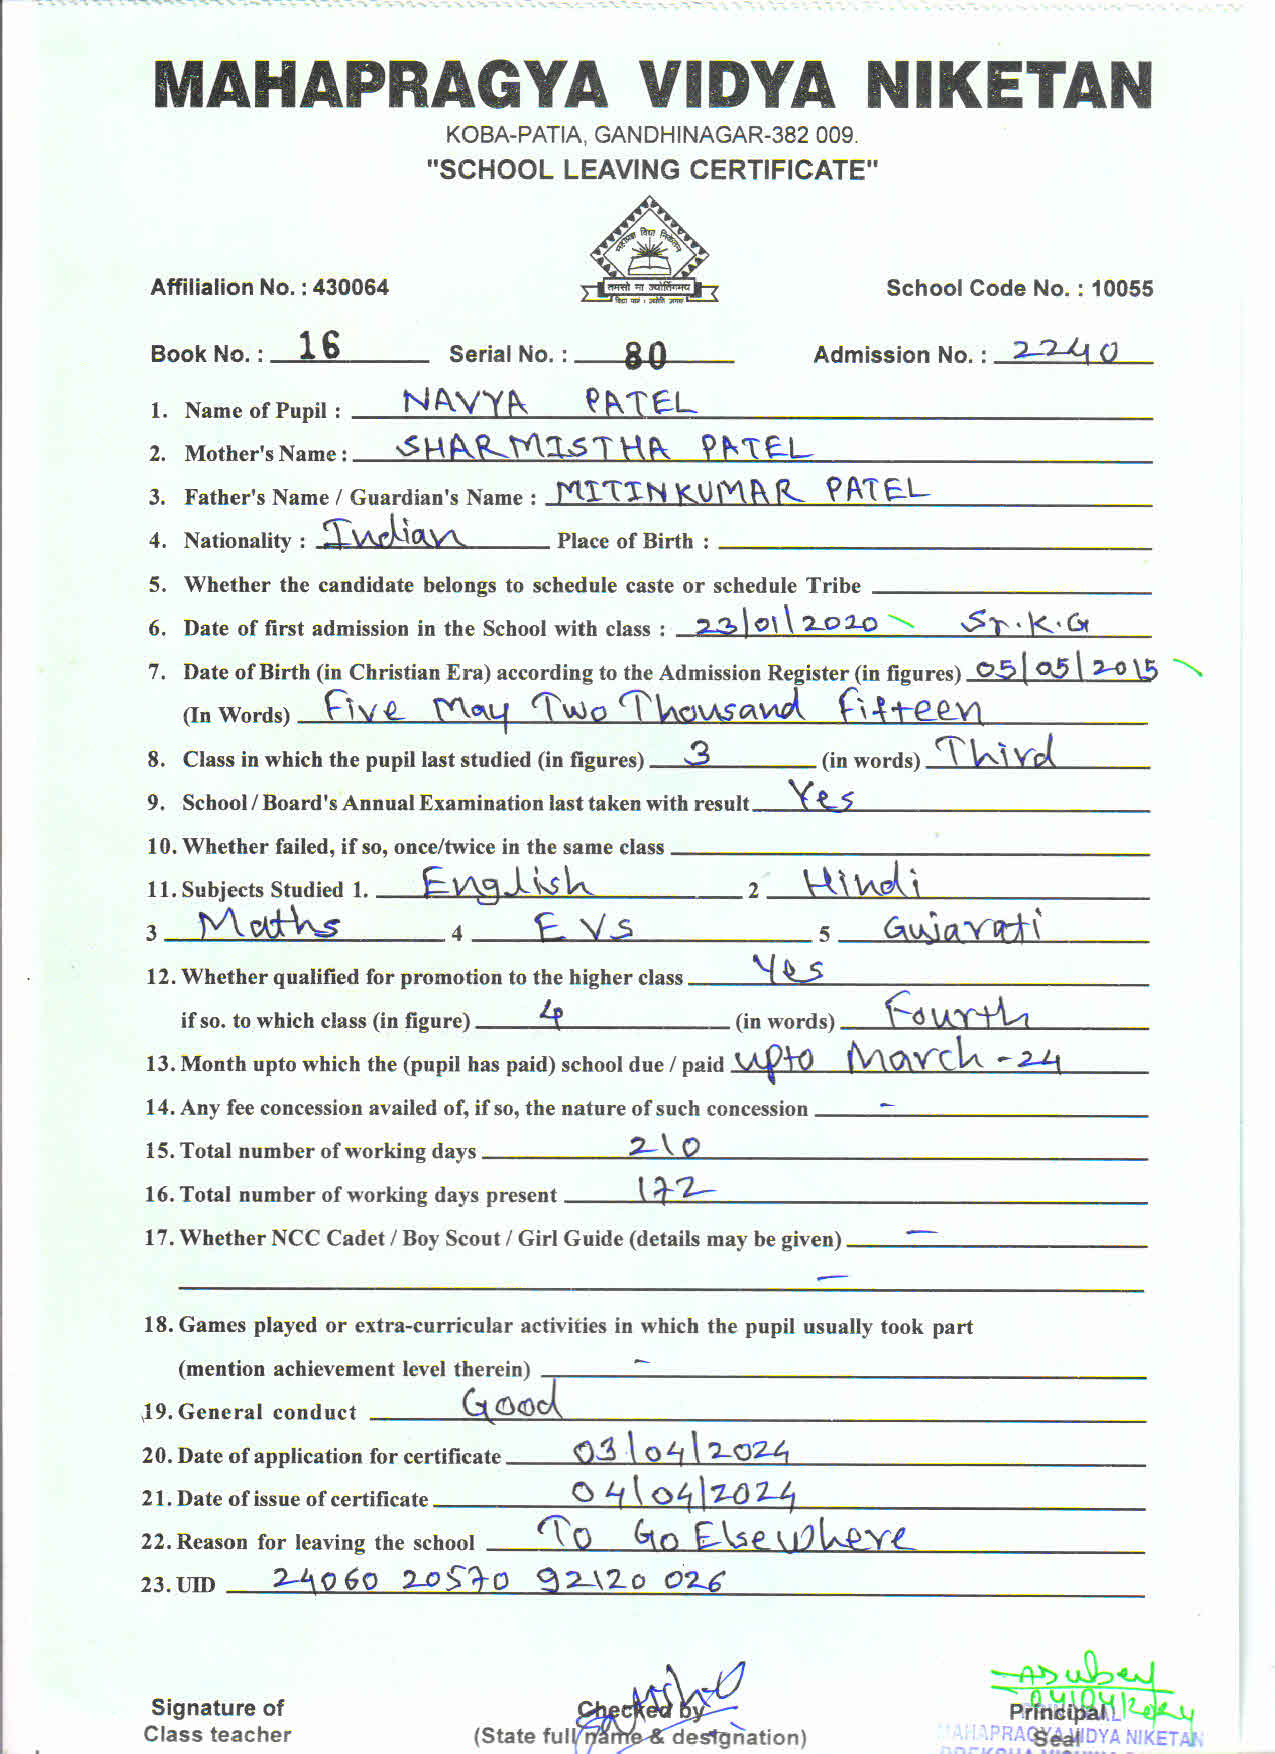 MAHAPRAGYA VIDYA NIKETAN
KOBA-PATIA, GANDHINAGAR-382 009.
"SCHOOL LEAVING CERTIFICATE"
महाप्रज्ञ विद्या निकेतन
तमसो मा ज्योतिर्गमय
Affilialion No. : 430064 School Code No. : 10055
Book No. : 16 Serial No. : 80 Admission No. : 2240
1. Name of Pupil : NAVYA PATEL
2. Mother's Name : SHARMISTHA PATEL
3. Father's Name / Guardian's Name : MITINKUMAR PATEL
4. Nationality : Indian Place of Birth :
5. Whether the candidate belongs to schedule caste or schedule Tribe
6. Date of first admission in the School with class : 23/01/2020 Sr.K.G
7. Date of Birth (in Christian Era) according to the Admission Register (in figures) 05/05/2015
(In Words) Five May Two Thousand Fifteen
8. Class in which the pupil last studied (in figures) 3 (in words) Third
9. School / Board's Annual Examination last taken with result Yes
10. Whether failed, if so, once/twice in the same class
11. Subjects Studied 1. English 2 Hindi
3 Maths 4 EVS 5 Gujarati
12. Whether qualified for promotion to the higher class Yes
if so. to which class (in figure) 4 (in words) Fourth
13. Month upto which the (pupil has paid) school due / paid upto March-24
14. Any fee concession availed of, if so, the nature of such concession -
15. Total number of working days 210
16. Total number of working days present 172
17. Whether NCC Cadet / Boy Scout / Girl Guide (details may be given) —
—
18. Games played or extra-curricular activities in which the pupil usually took part
(mention achievement level therein) -
19. General conduct Good
20. Date of application for certificate 03/04/2024
21. Date of issue of certificate 04/04/2024
22. Reason for leaving the school To Go Elsewhere
23. UID 24060 20570 92120 026
Signature of Checked by Principal
Class teacher (State full name & designation) Seal
04/04/2024
MAHAPRAGYA VIDYA NIKETAN